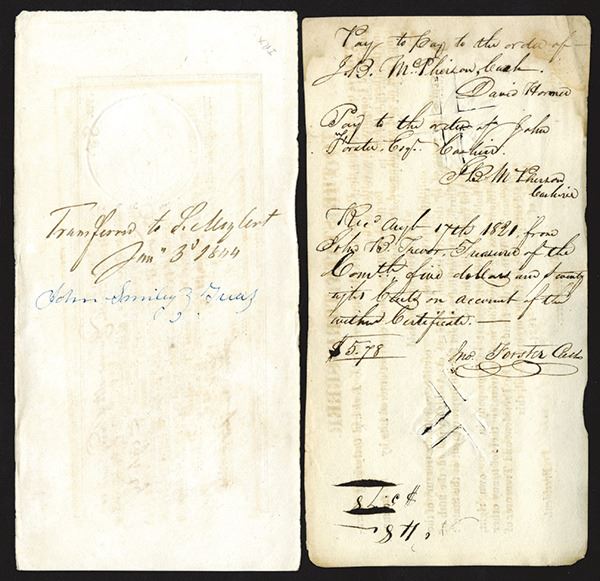 Transferred to S. Meylert
Jan'y 3d 1844
John Smiley Treas
Pay to pay to the order of
J.B. McPherson, Cash.
David Horner
Pay to the order of John
Forster, Esqr. Cashier
J B McPherson
Cashier
Recd Augt 17th 1821 from
John B. Trevor, Treasurer of the
Comth five dollars and Seventy
eight Cents on account of the
within Certificate.—
$5.78
Jno. Forster Cash